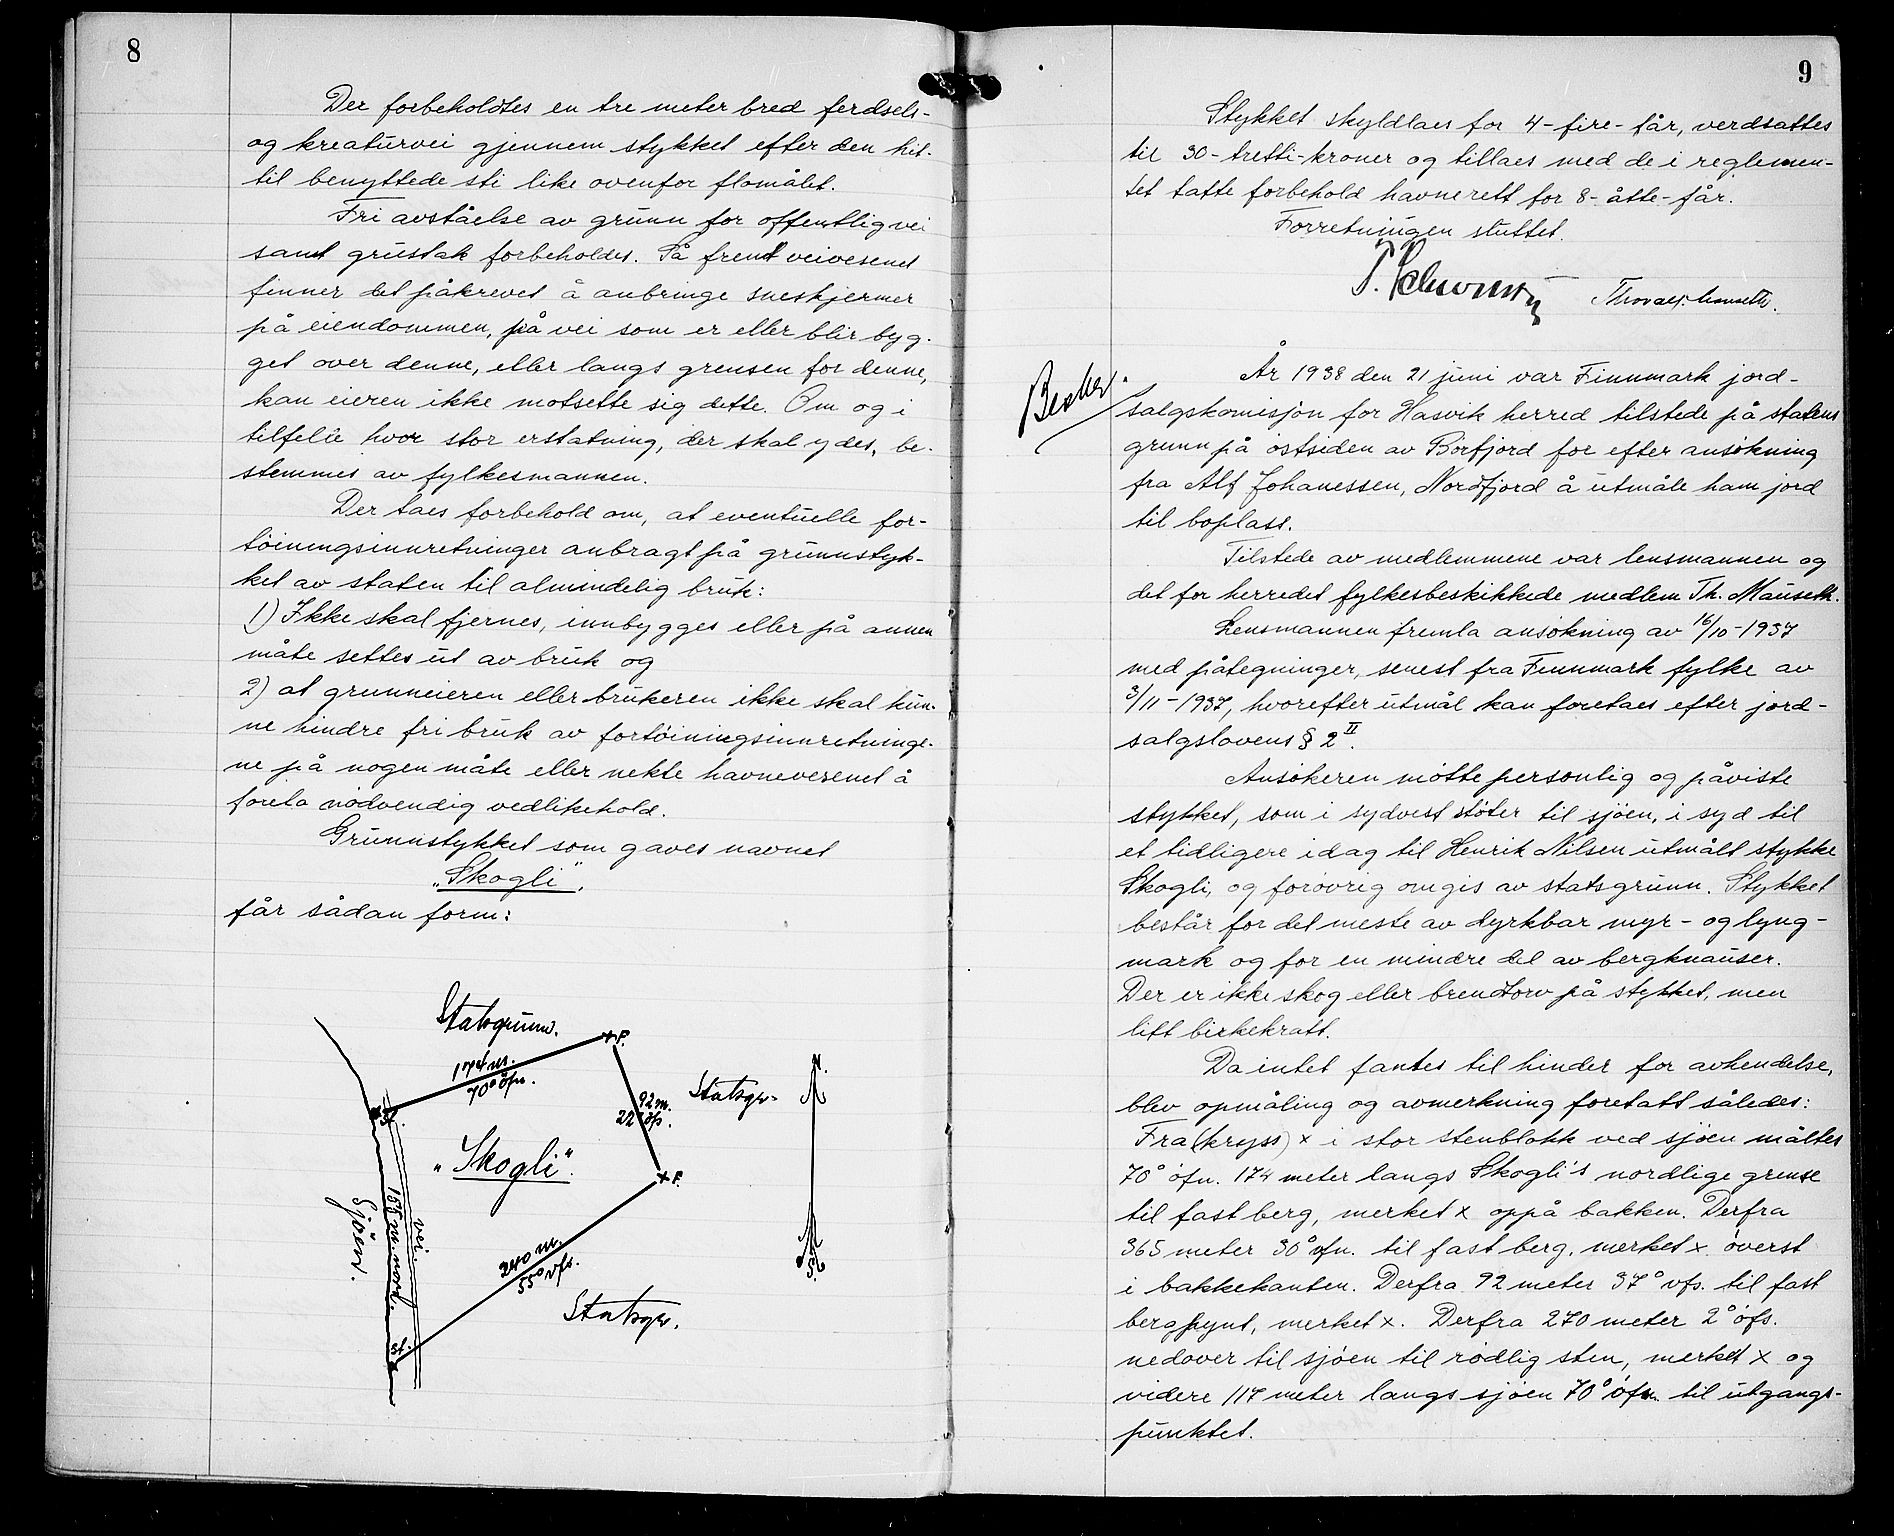 8
Der forbeholdtes en tre meter bred ferdsels-
og kreaturvei gjennem stykket efter den hit-
til benyttede sti like ovenfor flomålet.
Fri avståelse av grunn for offentlig vei
samt grustak forbeholdes. Så fremt veivesenet
finner det påkrevet å anbringe sneskjermer
på eiendommen, på vei som er eller blir byg-
get over denne, eller langs grensen for denne,
kan eieren ikke motsette sig dette. Om og i
tilfelle hvor stor erstatning, der skal ydes, be-
stemmes av fylkesmannen.
Der taes forbehold om, at eventuelle for-
töiningsinnretninger anbragt på grunnstyk-
ket av staten til almindelig bruk:
1) Ikke skal fjernes, innbygges eller på annen
måte settes ut av bruk og
2) at grunneieren eller brukeren ikke skal kun-
ne hindre fri bruk av fortöiningsinnretninge-
ne på nogen måte eller nekte havnevesenet å
foreta nödvendig vedlikehold.
Grunnstykket som gaves navnet
"Skogli",
får sådan form:
Statsgrunn.
174 m.
70° öfn.
+F.
92 m.
22° öfs.
Statsgr.
N.
St.
"Skogli".
+F.
Sjöen.
155 m. nord.
vei.
240 m.
55° vfs.
S.
Statsgr.
St.
9
Stykket skyldlaes for 4-fire-får, verdsattes
til 30-tretti-kroner og tillaes med de i reglemen-
tet tatte forbehold havnerett for 8-åtte-får.
Forretningen sluttet.
År 1938 den 21 juni var Finnmark jord-
salgskomisjon for Hasvik herred tilstede på statens
grunn på östsiden av Börfjord for efter ansökning
fra Alf Johanessen, Nordfjord å utmåle ham jord
til boplass.
Tilstede av medlemmene var lensmannen og
det for herredet fylkesbeskikkede medlem Th. Mauseth.
Lensmannen fremla ansökning av 16/10-1937
med påtegninger, senest fra Finnmark fylke av
3/11-1937, hvorefter utmål kan foretaes efter jord-
salgslovens § 2 II.
Ansökeren mötte personlig og påviste
stykket, som i sydvest stöter til sjöen, i syd til
et tidligere idag til Henrik Nilsen utmålt stykke
Skogli, og forövrig omgis av statsgrunn. Stykket
består for det meste av dyrkbar myr- og lyng-
mark og for en mindre del av bergknauser.
Der er ikke skog eller brendtorv på stykket, men
litt birkekratt.
Da intet fantes til hinder for avhendelse,
blev opmåling og avmerkning foretatt således:
Fra (kryss) x i stor stenblokk ved sjöen måltes
70° öfn. 174 meter langs Skogli's nordlige grense
til fast berg, merket x oppå bakken. Derfra
365 meter 30° vfn. til fast berg, merket x överst
i bakkekanten. Derfra 92 meter 37° vfs. til fast
bergpynt, merket x. Derfra 270 meter 2° öfs.
nedover til sjöen til rödlig sten, merket x og
videre 117 meter langs sjöen 70° öfn. til utgangs-
punktet.